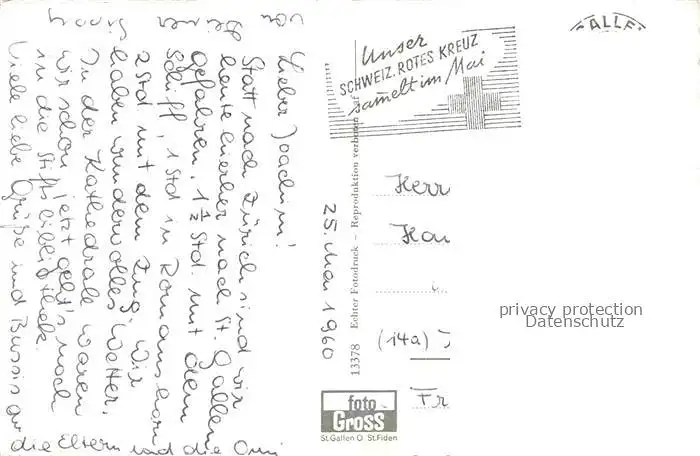 Lieber Joachim!
Statt nach Zürich sind wir
heute hierher nach St. Gallen
gefahren. 1 1/2 Std. mit dem
Schiff, 1 Std in Romanshorn
2 Std mit dem Zug. Wir
haben wundervolles Wetter.
In der Kathedrale waren
wir schon, jetzt geht's noch
in die Stiftsbibliothek.
Viele liebe Grüße und Bussis an
die Eltern und die Omi
von Deiner
25. Mai 1960
13378 Echter Fotodruck – Reproduktion verboten
Unser
SCHWEIZ. ROTES KREUZ
sammelt im Mai
ALLE
Herr
(14a)
Fr
privacy protection
Datenschutz
foto
Gross
St.Gallen O St.Fiden